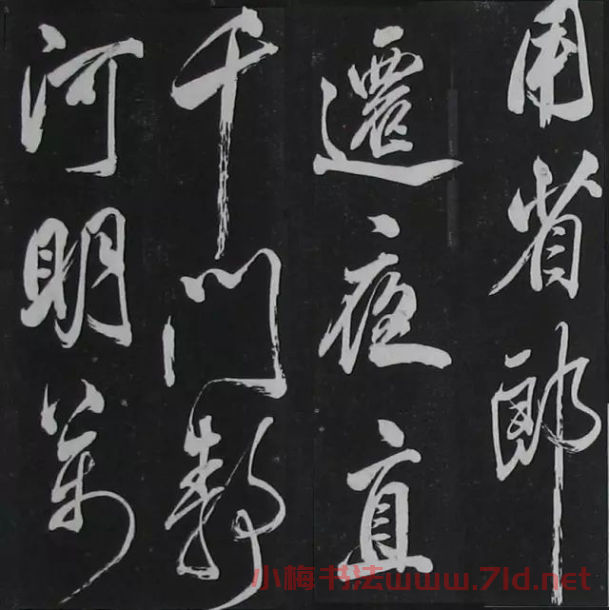 用省郎
遷夜直
千門静
河明萬
小梅书法www.7ld.net